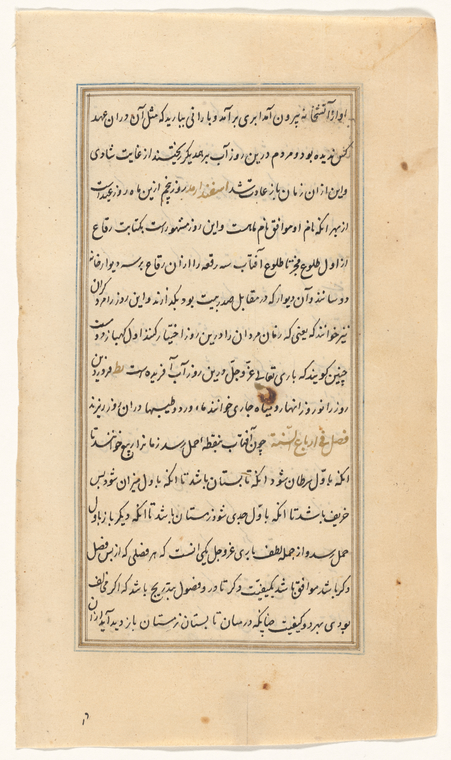 با او از آتشخانه بیرون آمد ابری برآمد و بارانی ببارید که مثل آن در آن عهد
کس ندیده بود و مردم درین روز آب بر همدیگر ریختند از غایت شادی
واین از آن زمان باز عادت شد اسفندارمد روز پنجم ازین ماه روز عیدست
از بهر آنکه نام او موافق نام ماهست و این روز مشهورست بکتابت رقاع
از اول طلوع فجر تا طلوع آفتاب سه رقعه را از آن رقاع بر سه دیوار خانه
دوسانند و آن دیوار که در مقابل صدر بیت بود بگذارند و این روز را مردگیران
نیز خوانند که یعنی که زنان مردان را درین روز اختیار کنند اول
چنین کویند که باری تعالی عزّ و جلّ درین روز آب آفریده است یط فروردین
روز را نوروز انهار و میاه جاری خوانند ماورد و طیبها در آن روز ریزند
فصل فی ارباع السّنة چون آفتاب بنقطه حمل رسد زمانرا ربیع خوانند تا
آنکه باوّل سرطان شود آنکه تابستان باشد تا آنکه باول میزان شود پس
خریف باشد تا آنکه باوّل جدی شود زمستان باشد تا آنکه دیکر باز باول
حمل رسد و از جمله لطف باری عزوجل یکی آنست که هر فصلی که از پس فصل
دکر باشد موافق باشد بکیفیّت دکر تا در و فصول بتدریج باشد که اکر مخالف
بودی بهر دو کیفیت چنانکه در میان تابستان زمستان باز دید آید از آن